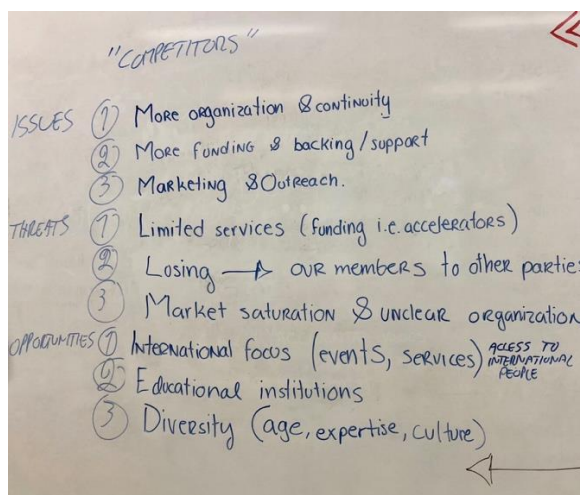 "COMPETITORS"
ISSUES ① More organization & continuity
② More funding & backing/support
③ Marketing & Outreach.
THREATS ① Limited services (funding i.e. accelerators)
② Losing → our members to other parties
③ Market saturation & unclear organization
OPPORTUNITIES ① International focus (events, services) ACCESS TO INTERNATIONAL PEOPLE
② Educational institutions
③ Diversity (age, expertise, culture)